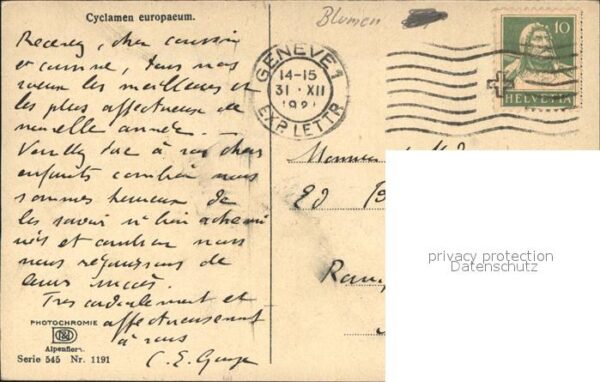 Cyclamen europaeum.
Blumen
Recevez, cher cousin
et cousine, tous nos
vœux les meilleurs et
les plus affectueux de
nouvelle année.
à vos chers
enfants combien nous
sommes heureux de
les savoir si bien achemi
nés et combien nous
nous réjouissons de
leurs succès.
Très cordialement et
affectueusement
à vous
C. E.
PHOTOCHROMIE
Alpenflora
Serie 545 Nr. 1191
GENÈVE 1
14-15
31 · XII
EXP. LETTR.
10
HELVETIA
Ed
privacy protection
Datenschutz